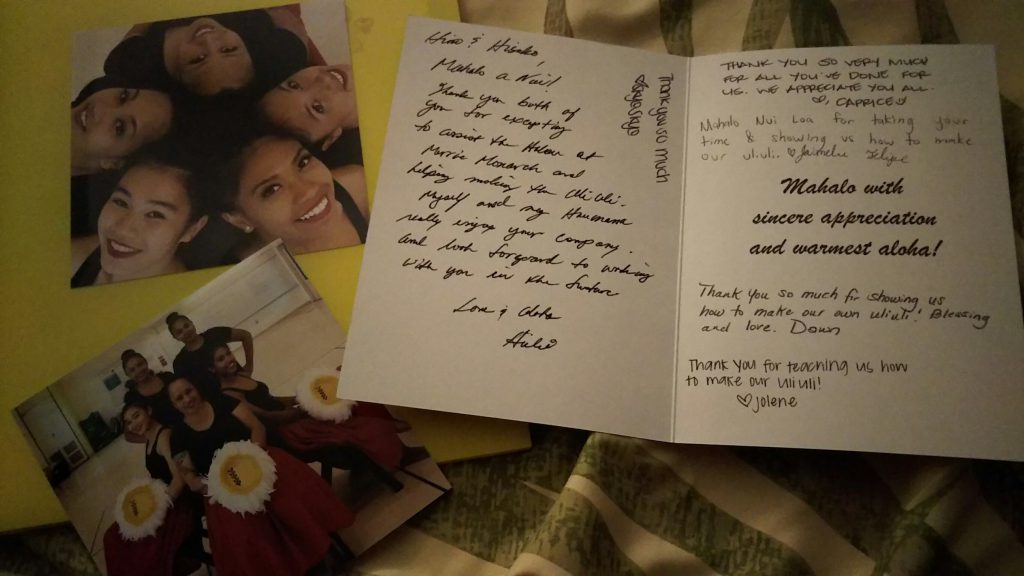 Hiro & Hisako,
Mahalo a Nui!
Thank you both of
you for excepting
to assist the Halau at
Merrie Monarch and
helping making the Uli Uli.
Myself and my Haumana
really enjoy your company.
and look forward to working
with you in the future
Love & Aloha
Thank you so much
THANK YOU SO VERY MUCH
FOR ALL YOU'VE DONE FOR
US. WE APPRECIATE YOU ALL.
♡, CAPRICE
Mahalo Nui Loa for taking your
time & showing us how to make
our uliuli. ♡ Felipe
Mahalo with
sincere appreciation
and warmest aloha!
Thank you so much for showing us
how to make our own uliuli! Blessing
and love. Dawn
Thank you for teaching us how
to make our Uliuli!
♡ Jolene